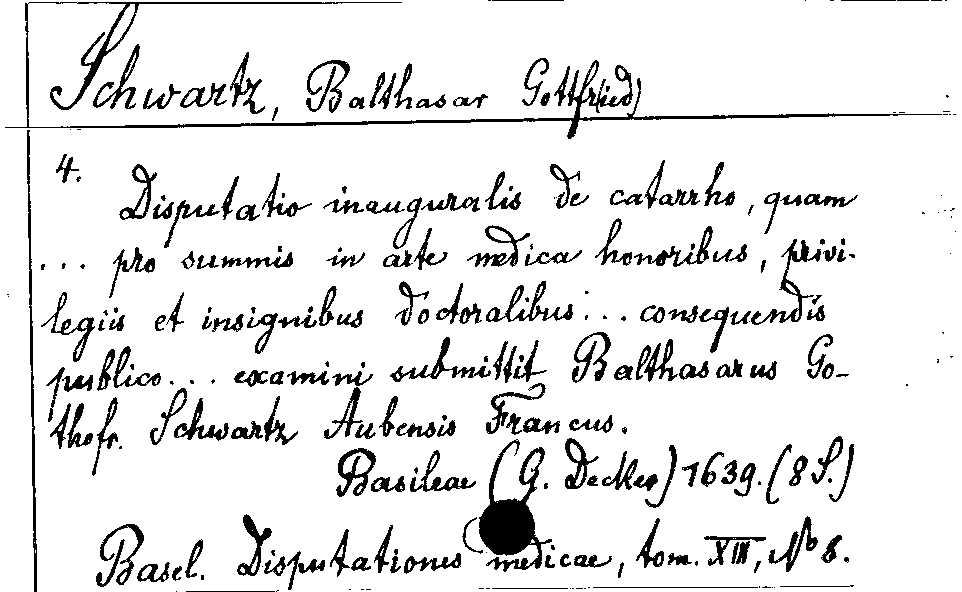 Schwartz, Balthasar Gottfr(ied)
4.
Disputatio inauguralis de catarrho, quam
... pro summis in arte medica honoribus, privi-
legiis et insignibus doctoralibus ... consequendis
publico ... examini submittit Balthasarus Go-
thofr. Schwartz Aubensis Francus.
Basileae (G. Decker) 1639. (8 S.)
Basel. Disputationes medicae, tom. XIII, No 6.